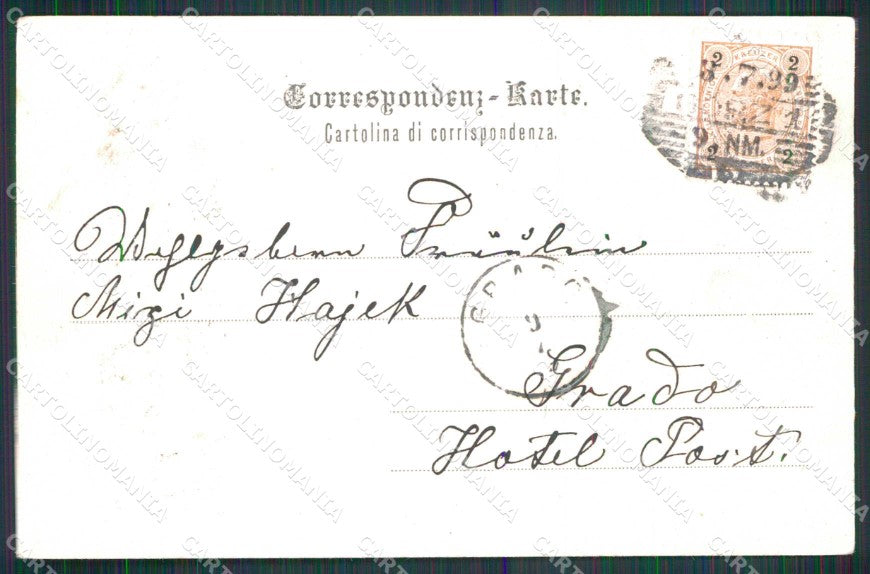 Correspondenz-Karte.
Cartolina di corrispondenza.
2 2
8.7.99
9. NM.
2 2
Wohlgeboren Fräulein
Mizi Hajek
GRADO
9
Grado
Hotel Post.
CARTOLINOMANIA